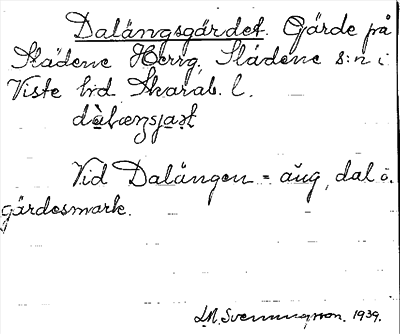 Dalängsgärdet. Gärde på
Slädene Herrg, Slädene s:n i
Viste hd Skarab. l.
dàlæŋsjaṣt
Vid Dalängen = äng, dal o.
gärdesmark.
S.M. Svenningsson. 1939.